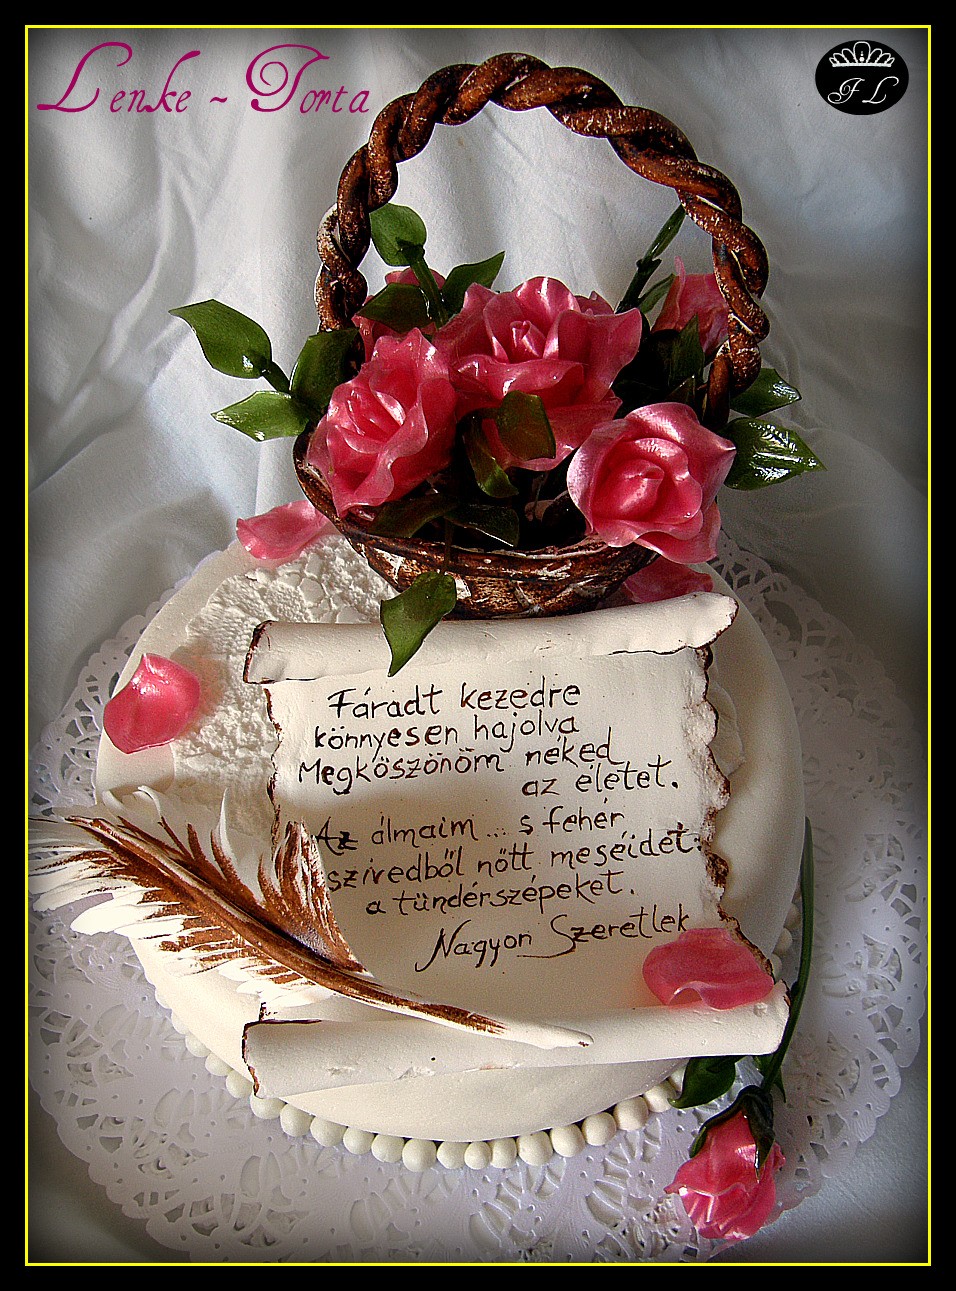 Lenke - Torta
FL
Fáradt kezedre
könnyesen hajolva
Megköszönöm néked
az életet.
Az álmaim... s fehér
szívedből nőtt meséidet:
a tündérszépeket.
Nagyon Szeretlek